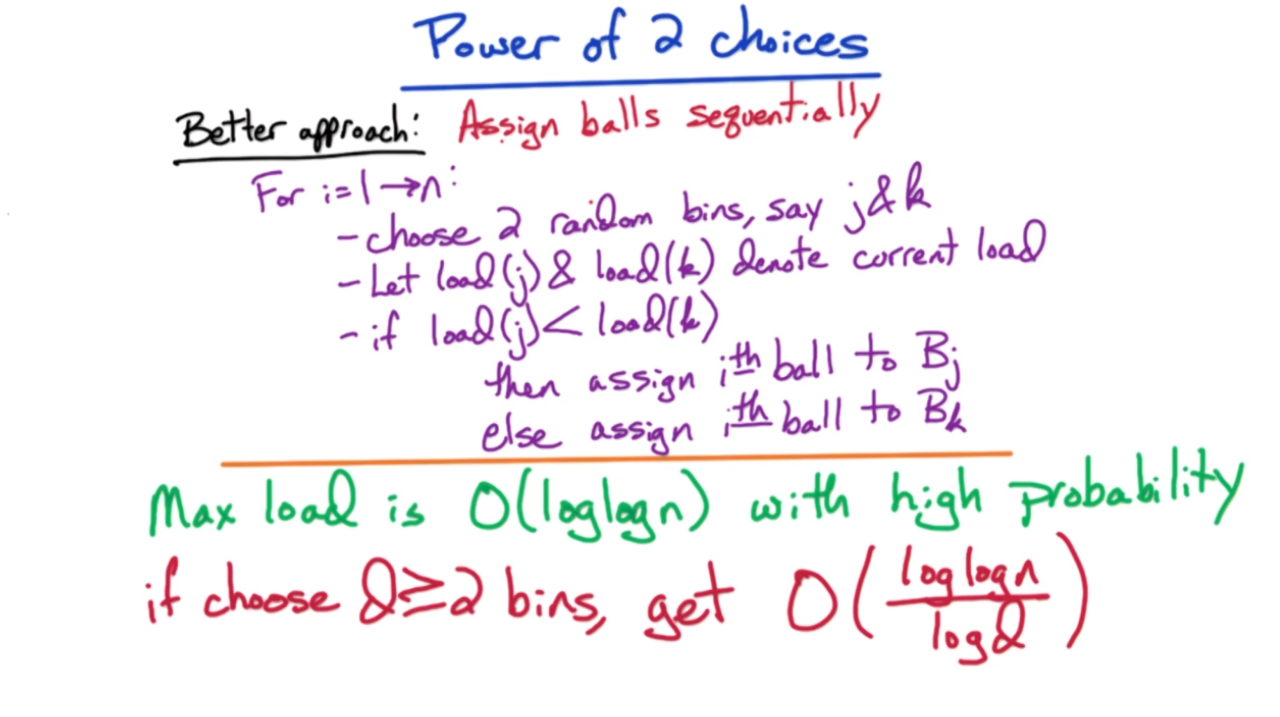 Power of 2 choices
Better approach: Assign balls sequentially
For i=1→n:
- choose 2 random bins, say j & k
- Let load(j) & load(k) denote current load
- if load(j) < load(k)
then assign ith ball to Bj
else assign ith ball to Bk
Max load is O(loglogn) with high probability
if choose d≥2 bins, get O(loglogn / logd)